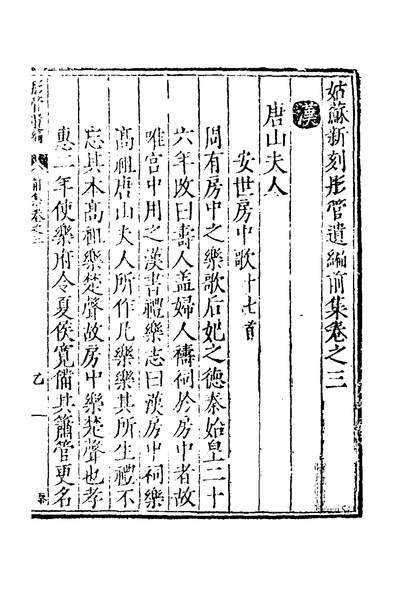 姑蘇新刻彤管遺編前集卷之三
漢
唐山夫人
安世房中歌十七首
周有房中之樂歌后妃之德秦始皇二十
六年改曰壽人盖婦人禱祠於房中者故
唯宫中用之漢書禮樂志曰漢房中祠樂
高祖唐山夫人所作凡樂樂其所生禮不
忘其本高祖樂楚聲故房中樂楚聲也孝
惠二年使樂府令夏侯寬備其簫管更名
彤管遺編
前集卷之三
乙一